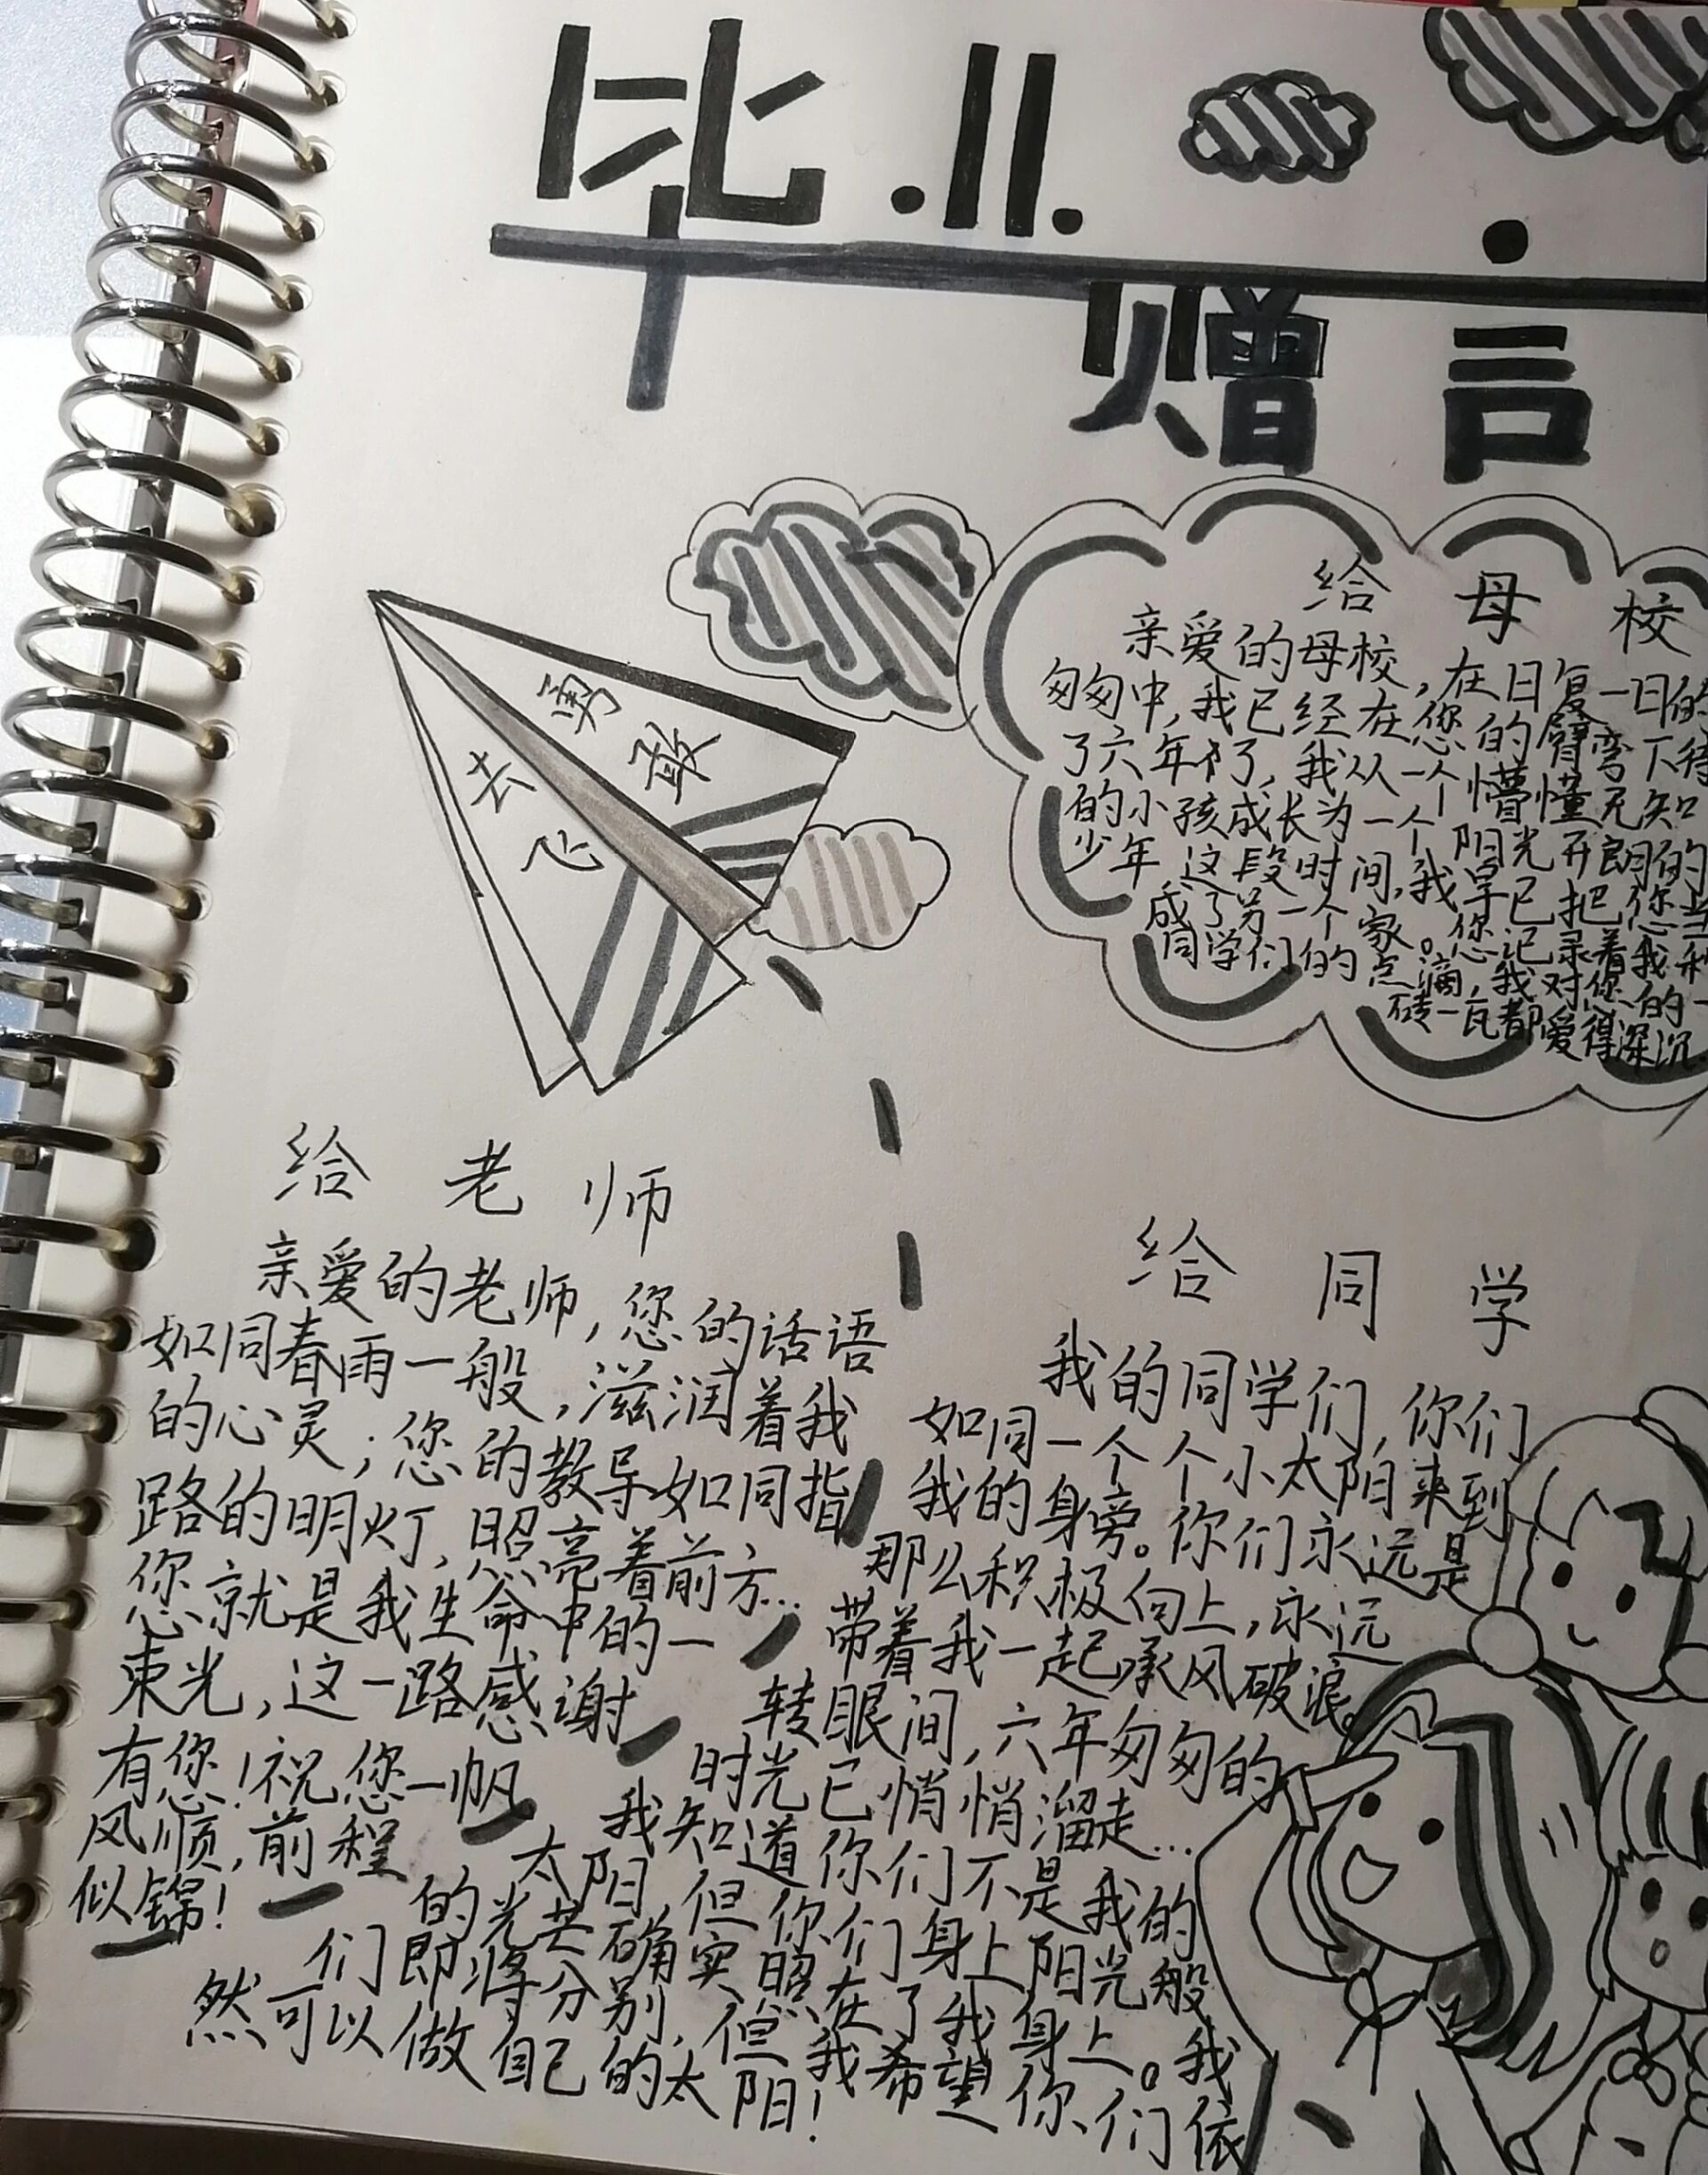 毕业
赠言
勇敢
去飞
给母校
亲爱的母校,在日复一日的
匆匆中,我已经在您的臂弯下待
了六年了,我从一个懵懂无知
的小孩成长为一个阳光开朗的
少年,这段时间,我早已把您当
成了另一个家。您记录着我和
同学们的点滴,我对您的一
砖一瓦都爱得深沉
给老师
亲爱的老师,您的话语
如同春雨一般,滋润着我
的心灵;您的教导如同指
路的明灯,照亮着前方...
您就是我生命中的一
束光,这一路感谢
有您!祝您一帆
风顺,前程
似锦!
给同学
我的同学们,你们
如同一个个小太阳来到
我的身旁。你们永远是
那么积极向上,永远
带着我一起承风破浪。
转眼间,六年匆匆的
时光已悄悄溜走...
我知道你们不是我的
太阳,但你们身上阳光般
的光芒确实照在了我身上。我
们即将分别,但我希望你们依
然可以做自己的太阳!